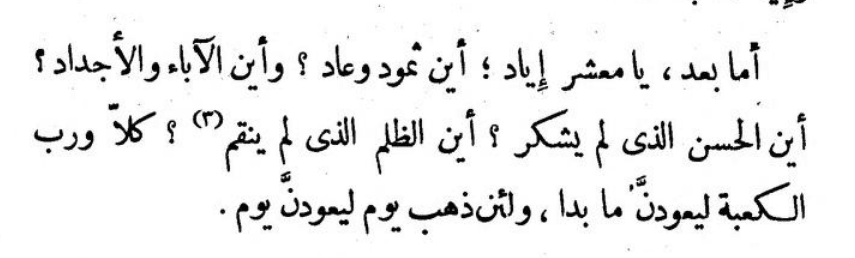 أما بعد ، يا معشر إياد ؛ أين ثمود وعاد ؟ وأين الآباء والأجداد ؟
أين الحسن الذى لم يشكر ؟ أين الظلم الذى لم ينقم (٣) ؟ كلاّ ورب
الكعبة ليعودنَّ ما بدا ، ولئن ذهب يوم ليعودنَّ يوم .